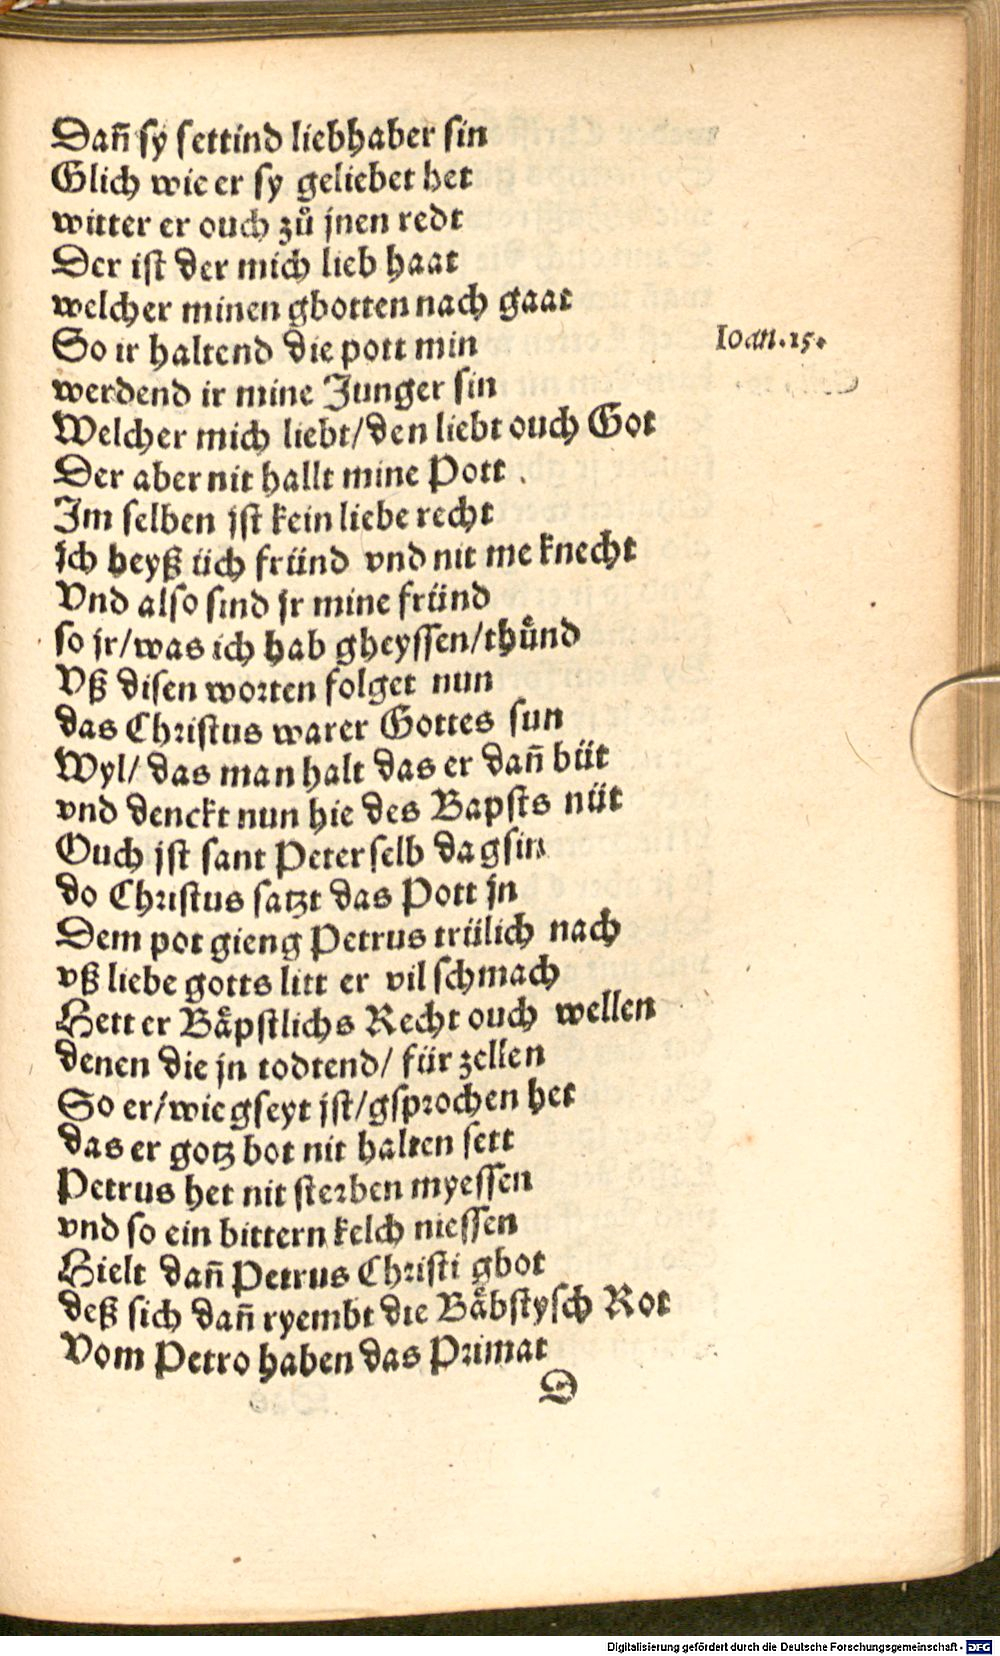 Dañ sy settind liebhaber sin
Glich wie er sy geliebet het
witter er ouch zů jnen redt
Der ist der mich lieb haat
welcher minen gbotten nach gaat
So ir haltend die pott min
Ioan.15.
werdend ir mine Junger sin
Welcher mich liebt/den liebt ouch Got
Der aber nit hallt mine Pott.
Im selben jst kein liebe recht
ich heyß üch fründ vnd nit me knecht
Vnd also sind jr mine fründ
so jr/was ich hab gheyssen/thůnd
Vß disen worten folget nun
das Christus warer Gottes sun
Wyl/ das man halt das er dañ büt
vnd denckt nun hie des Bapsts nüt
Ouch jst sant Peter selb da gsin
do Christus satzt das Pott jn
Dem pot gieng Petrus trülich nach
vß liebe gotts litt er vil schmach
Hett er Båpstlichs Recht ouch wellen
denen die jn todtend/ für zellen
So er/wie gseyt jst/gsprochen het
das er gotz bot nit halten sett
Petrus het nit sterben myessen
vnd so ein bittern kelch niessen
Hielt dañ Petrus Christi gbot
deß sich dañ ryembt die Båbstysch Rot
Vom Petro haben das Primat
D
Digitalisierung gefördert durch die Deutsche Forschungsgemeinschaft - DFG